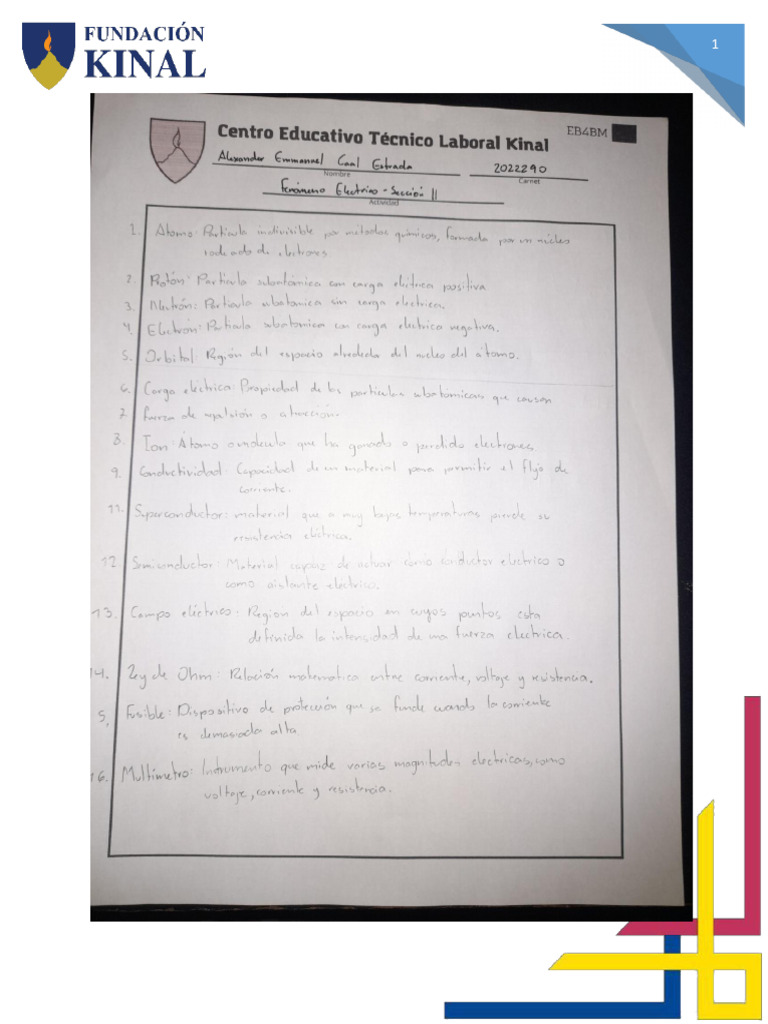 FUNDACIÓN
KINAL
1
Centro Educativo Técnico Laboral Kinal
EB4BM
Alexander Emmanuel Caal Estrada
2022290
Nombre
Carnet
Fenómeno Electrico - Sección II
Actividad
1. Átomo: Partícula indivisible por métodos químicos, formada por un núcleo
rodeado de electrones.
2. Protón: Partícula subatómica con carga eléctrica positiva
3. Neutrón: Partícula subatomica sin carga electrica.
4. Electrón: Partícula subatomica con carga electrica negativa.
5. Orbital: Región del espacio alrededor del nucleo del átomo.
6. Carga eléctrica: Propiedad de las partículas subatómicas que causan
7. fuerza de repulsión o atracción.
8. Ion: Átomo o molécula que ha ganado o perdido electrones
9. Conductividad: Capacidad de un material para permitir el flujo de
corriente.
11. Superconductor: material que a muy bajas temperaturas pierde su
resistencia eléctrica.
12. Semiconductor: Material capaz de actuar como conductor electrico o
como aislante electrico.
13. Campo eléctrico: Region del espacio en cuyos puntos esta
definida la intensidad de una fuerza electrica.
14. Ley de Ohm: Relación matematica entre corriente, voltaje y resistencia.
5. Fusible: Dispositivo de protección que se funde cuando la corriente
es demasiada alta
16. Multímetro: Instrumento que mide varias magnitudes electricas, como
voltaje, corriente y resistencia.